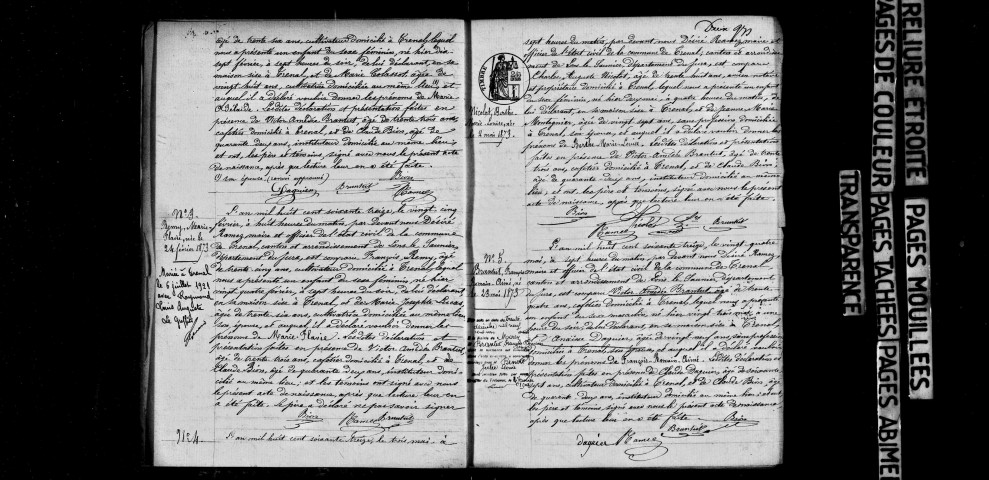 âgé de trente six ans, cultivateur domicilié à Trenal, lequel
nous a présenté un enfant du sexe féminin, né hier dix
sept février, à sept heures du soir, de lui déclarant, en sa
maison sise à Trenal, et de Marie Colassot, âgée de
vingt huit ans, cultivatrice domiciliée au même lieu,
auquel il a déclaré vouloir donner les prénoms de Marie
Lesdites déclaration et présentation faites en
présence de Victor Amédée Brantut, âgé de trente trois ans,
cafetier domicilié à Trenal, et de Claude Bion, âgé de
quarante deux ans, instituteur domicilié au même lieu;
et ont, les père et témoins, signé avec nous le présent acte
de naissance, après que lecture leur en a été faite.
Daguier Brantut Bion
Ramez
N° 3.
Remy, Marie
Flavie, née le
24 février 1873
Mariée à Trenal
le 5 juillet 1921
avec Raymond
Louis Auguste
Le Greffier
L'an mil huit cent soixante treize, le vingt cinq
février, à huit heures du matin, par devant nous Désiré
Ramez, maire et officier de l'état civil de la commune
de Trenal, canton et arrondissement de Lons le Saunier,
département du Jura, est comparu François Remy, âgé
de trente cinq ans, cultivateur domicilié à Trenal, lequel
nous a présenté un enfant du sexe féminin, né hier
vingt quatre février, à sept heures du soir, de lui déclarant
en sa maison sise à Trenal, et de Marie Josephte
âgée de trente six ans, cultivatrice domiciliée au même lieu
son épouse, et auquel il a déclaré vouloir donner les
prénoms de Marie Flavie. Lesdites déclaration et
présentation faites en présence de Victor Amédée Brantut,
âgé de trente trois ans, cafetier domicilié à Trenal, et de
Claude Bion, âgé de quarante deux ans, instituteur domi-
cilié au même lieu; et les témoins ont signé avec nous
le présent acte de naissance, après que lecture leur en
a été faite. Le père a déclaré ne pas savoir signer
Bion Ramez Brantut
N° 4.
L'an mil huit cent soixante treize, le trois mai, à
Deux
sept heures du matin, par devant nous Désiré Ramez, maire et
officier de l'état civil de la commune de Trenal, canton et arrondisse-
ment de Lons le Saunier, département du Jura, est comparu
Charles Auguste Nicolet, âgé de trente huit ans, ancien notaire
et propriétaire domicilié à Trenal, lequel nous a présenté un enfant
du sexe féminin, né hier deux mai, à quatre heures du matin, de
lui déclarant, en sa maison sise à Trenal, et de Jeanne Marie
Montagnier, âgée de vingt sept ans, sans profession domiciliée
à Trenal, son épouse, et auquel il a déclaré vouloir donner les
prénoms de Berthe Marie Louise. Lesdites déclaration et présentation
faites en présence de Victor Amédée Brantut, âgé de trente
trois ans, cafetier domicilié à Trenal, et de Claude Bion,
âgé de quarante deux ans, instituteur domicilié au même
lieu; et ont, les père et témoins, signé avec nous le présent
acte de naissance, après que lecture leur en a été faite.
Bion Nicolet Brantut
Ramez
TIMBRE
Nicolet, Berthe
Marie Louise, née
le 2 mai 1873.
N° 5.
Brantut, François
Romain Aimé, né
le 23 mai 1873
L'an mil huit cent soixante treize, le vingt quatre
mai, à sept heures du matin, par devant nous Désiré Ramez,
maire et officier de l'état civil de la commune de Trenal,
canton et arrondissement de Lons le Saunier, département
du Jura, est comparu Victor Amédée Brantut, âgé de trente
quatre ans, cafetier domicilié à Trenal, lequel nous a présenté
un enfant du sexe masculin, né hier vingt trois mai, à une
heure du soir, de lui déclarant, en sa maison sise à Trenal,
et Daguier, âgée de vingt sept ans, sans profession
domiciliée à Trenal, son épouse, et auquel il a déclaré vouloir
donner les prénoms de François Romain Aimé. Lesdites déclaration et
présentation faites en présence de Claude Daguier, âgé de soixante
sept ans, cultivateur domicilié à Trenal, et de Claude Bion, âgé
de quarante deux ans, instituteur domicilié au même lieu; et ont
les père et témoins signé avec nous le présent acte de naissance
après que lecture leur en a été faite. Bion
daguier Ramez Brantut
RELIURE ETROITE
PAGES MOUILLEES
PAGES DE COULEUR
PAGES TACHEES
PAGES ABIMEES
TRANSPARENCE